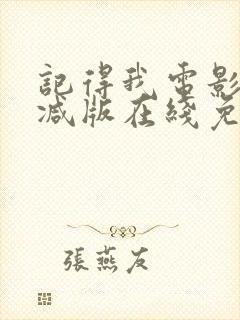 記得我電影
减版在綫免
張燕友